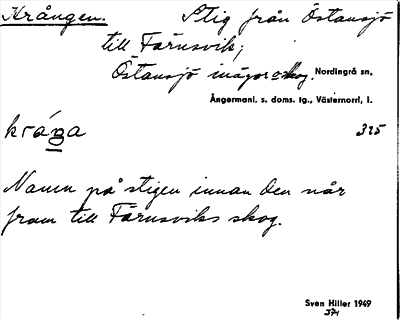 Krången. Stig från Östansjö
till Färnsvik;
Östansjö inägor o skog. Nordingrå sn,
Ångermanl. s. doms. tg., Västernorrl. l.
kráŋa 325
Namn på stigen innan den når
fram till Färnsviks skog.
Sven Hiller 1949